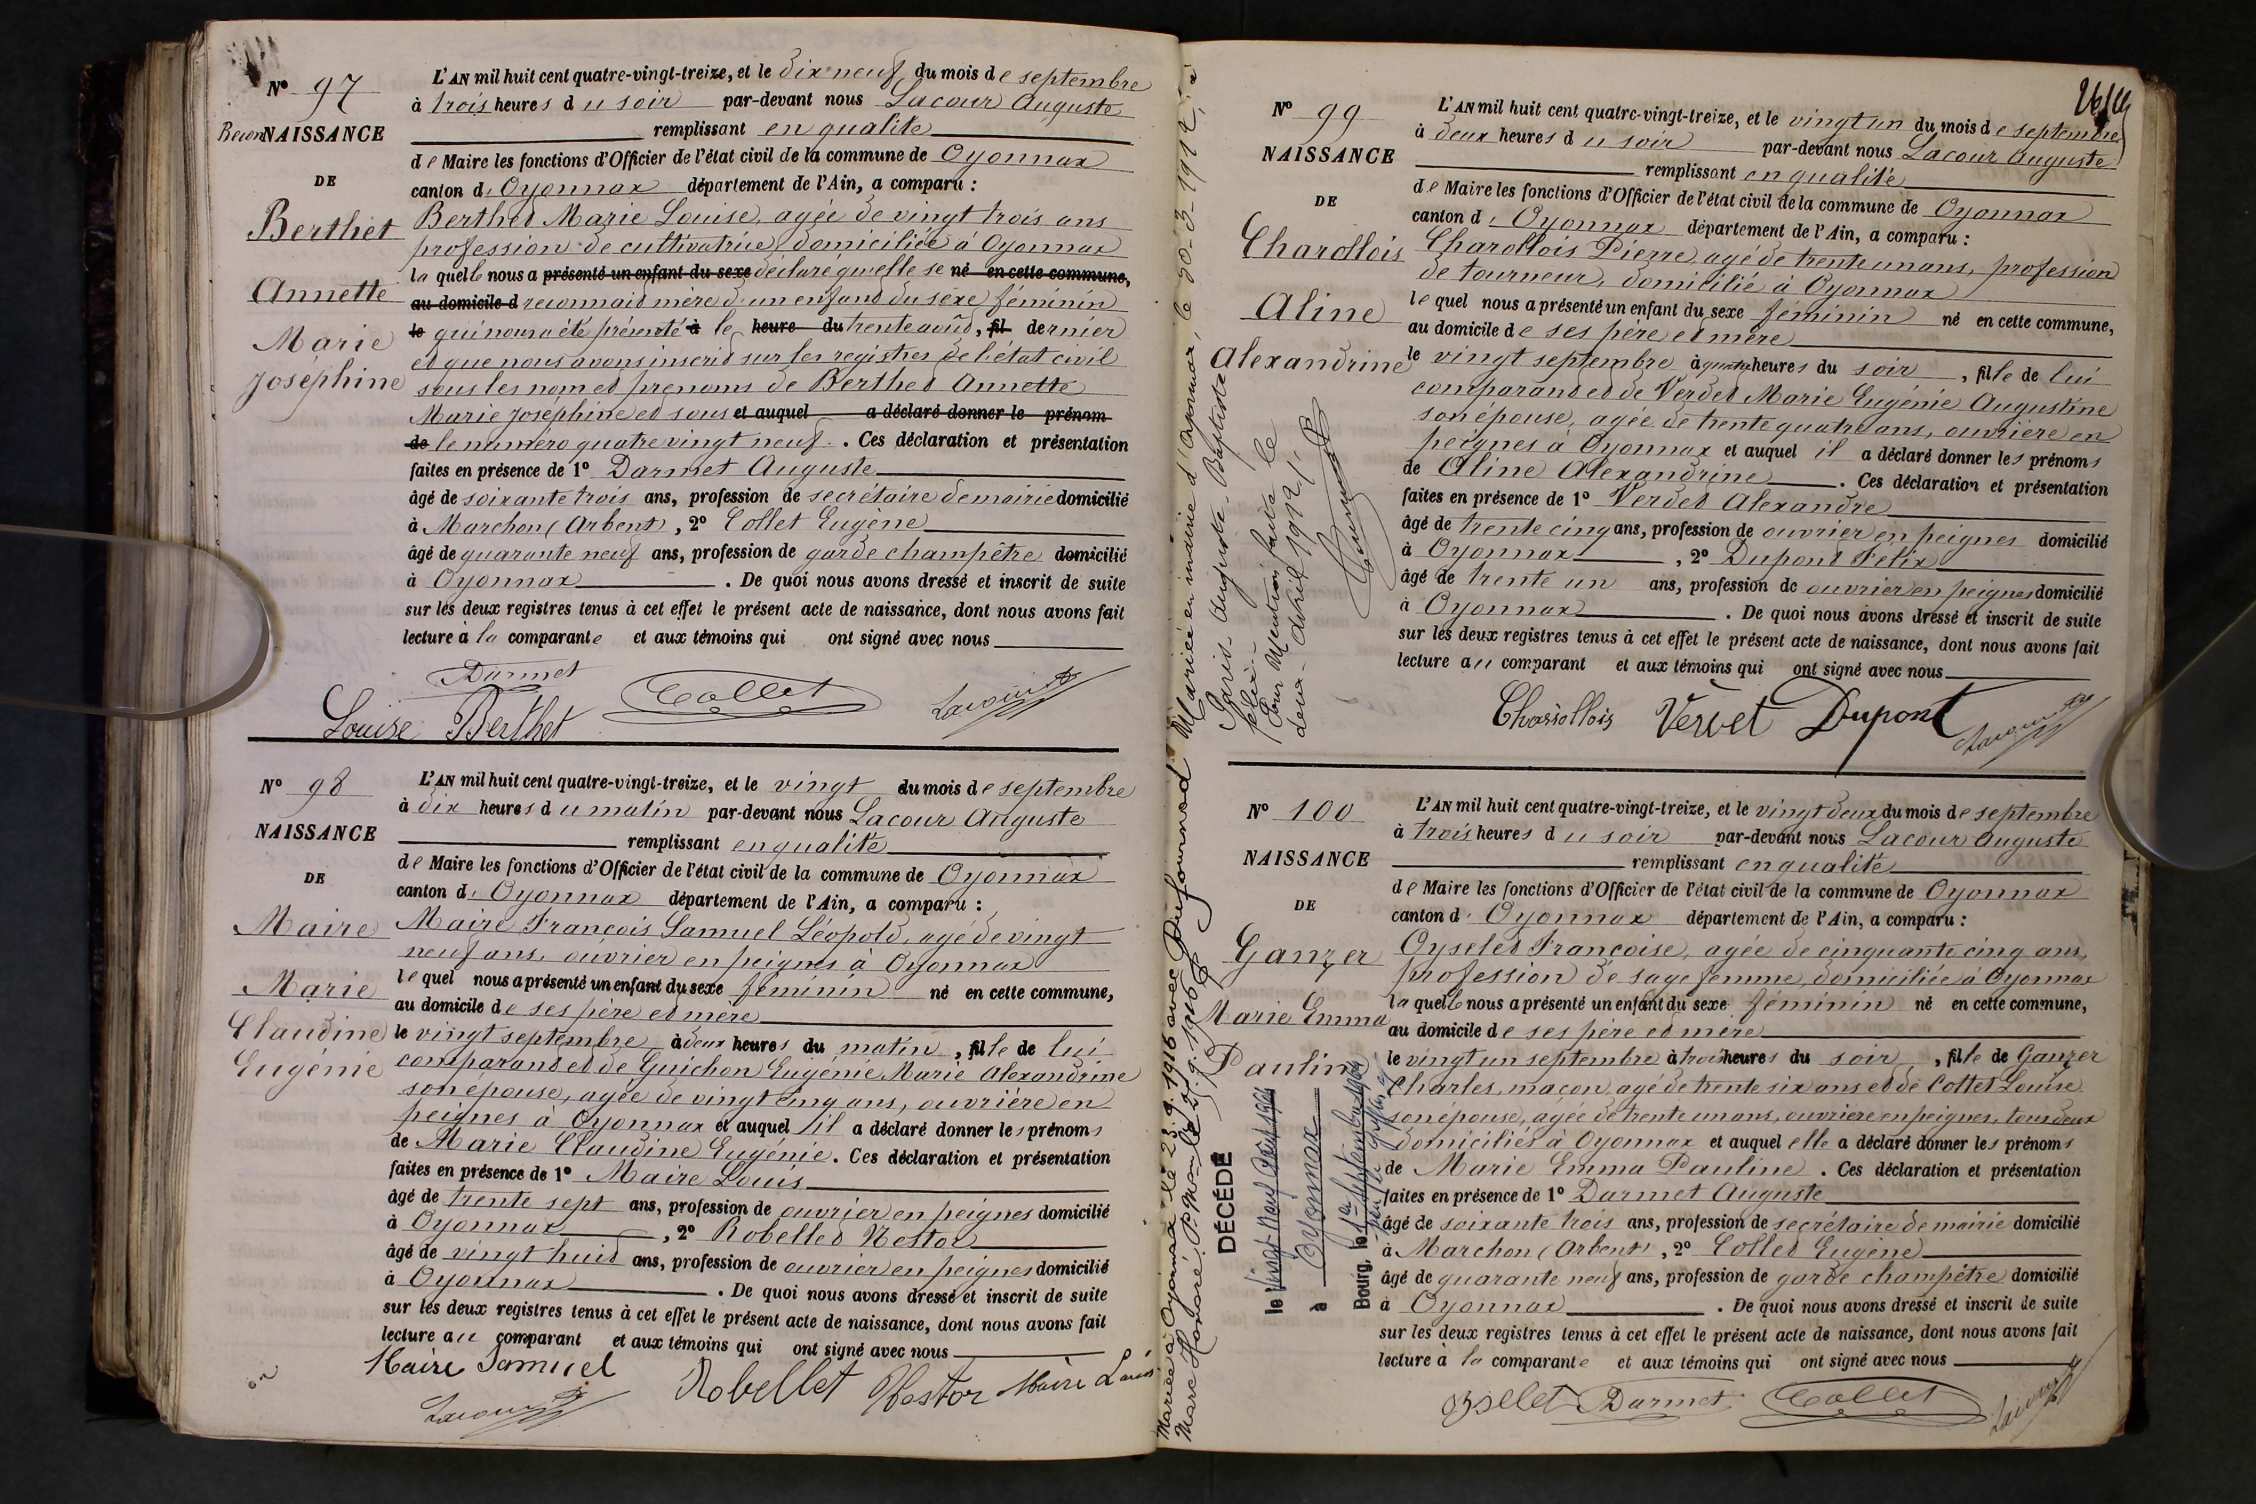 N° 97
Recon NAISSANCE
DE
Berthet
Annette
Marie
Joséphine
L'AN mil huit cent quatre-vingt-treize, et le dix neuf du mois de septembre
à trois heures du soir par-devant nous Lacour Auguste
remplissant en qualité
de Maire les fonctions d'Officier de l'état civil de la commune de Oyonnax
canton d'Oyonnax département de l'Ain, a comparu :
Berthet Marie Louise, agée de vingt trois ans
profession de cultivatrice domiciliée à Oyonnax
laquelle nous a présenté un enfant du sexe déclaré qu'elle se né en cette commune,
au domicile d reconnait mère d'un enfant du sexe féminin
le qui nous a été présenté à le heure du trente août, fil dernier
et que nous avons inscrit sur les registres de l'état civil
sous les nom et prénoms de Berthet Annette
Marie Joséphine et sous et auquel a déclaré donner le prénom
de le numéro quatre vingt neuf. Ces déclaration et présentation
faites en présence de 1° Darmet Auguste
âgé de soixante trois ans, profession de secrétaire de mairie domicilié
à Marchon (Arbent), 2° Collet Eugène
âgé de quarante neuf ans, profession de garde champêtre domicilié
à Oyonnax. De quoi nous avons dressé et inscrit de suite
sur les deux registres tenus à cet effet le présent acte de naissance, dont nous avons fait
lecture à la comparante et aux témoins qui ont signé avec nous
Darmet
Louise Berthet Collet Lacour
N° 98
NAISSANCE
DE
Maire
Marie
Claudine
Eugénie
L'AN mil huit cent quatre-vingt-treize, et le vingt du mois de septembre
à dix heures du matin par-devant nous Lacour Auguste
remplissant en qualité
de Maire les fonctions d'Officier de l'état civil de la commune de Oyonnax
canton d'Oyonnax département de l'Ain, a comparu :
Maire François Samuel Léopold, agé de vingt
neuf ans, ouvrier en peignes à Oyonnax
lequel nous a présenté un enfant du sexe féminin né en cette commune,
au domicile de ses père et mère
le vingt septembre à deux heures du matin, fille de lui
comparant et de Guichon Eugénie Marie Alexandrine
son épouse, agée de vingt cinq ans, ouvrière en
peignes à Oyonnax et auquel il a déclaré donner les prénoms
de Marie Claudine Eugénie. Ces déclaration et présentation
faites en présence de 1° Maire Louis
âgé de trente sept ans, profession de ouvrier en peignes domicilié
à Oyonnax, 2° Robellet Nestor
âgé de vingt huit ans, profession de ouvrier en peignes domicilié
à Oyonnax. De quoi nous avons dressé et inscrit de suite
sur les deux registres tenus à cet effet le présent acte de naissance, dont nous avons fait
lecture au comparant et aux témoins qui ont signé avec nous
Maire Samuel Robellet Nestor Maire Louis
Lacour
N° 99
NAISSANCE
DE
Charollois
Aline
Alexandrine
Mariée en mairie d'Oyonnax, le 30-3-1912, à
Paris Auguste-Baptiste
félix.-
Pour Mention faite le
deux avril 1912/.
L'AN mil huit cent quatre-vingt-treize, et le vingt un du mois de septembre
à deux heures du soir par-devant nous Lacour Auguste
remplissant en qualité
de Maire les fonctions d'Officier de l'état civil de la commune de Oyonnax
canton d'Oyonnax département de l'Ain, a comparu :
Charollois Pierre, agé de trente un ans, profession
de tourneur, domicilié à Oyonnax
lequel nous a présenté un enfant du sexe féminin né en cette commune,
au domicile de ses père et mère
le vingt septembre à quatre heures du soir, fille de lui
comparant et de Verdet Marie Eugénie Augustine
son épouse, agée de trente quatre ans, ouvrière en
peignes à Oyonnax et auquel il a déclaré donner les prénoms
de Aline Alexandrine. Ces déclaration et présentation
faites en présence de 1° Verdet Alexandre
âgé de trente cinq ans, profession de ouvrier en peignes domicilié
à Oyonnax, 2° Dupont Felix
âgé de trente un ans, profession de ouvrier en peignes domicilié
à Oyonnax. De quoi nous avons dressé et inscrit de suite
sur les deux registres tenus à cet effet le présent acte de naissance, dont nous avons fait
lecture au comparant et aux témoins qui ont signé avec nous
Charollois Vervet Dupont Lacour
N° 100
NAISSANCE
DE
Ganzer
Marie Emma
Pauline
Mariée à Oyonnax le 23.9.1916 avec Dufournod
Marc Honoré. P. Mon. le 25.9.1916
DÉCÉDÉ
le Vingt Neuf Août 1964
à Oyonnax
Bourg, le 1er Septembre 1964
L'AN mil huit cent quatre-vingt-treize, et le vingt deux du mois de septembre
à trois heures du soir par-devant nous Lacour Auguste
remplissant en qualité
de Maire les fonctions d'Officier de l'état civil de la commune de Oyonnax
canton d'Oyonnax département de l'Ain, a comparu :
Oyselet Françoise, agée de cinquante cinq ans,
profession de sage femme, domiciliée à Oyonnax
laquelle nous a présenté un enfant du sexe féminin né en cette commune,
au domicile de ses père et mère
le vingt un septembre à trois heures du soir, fille de Ganzer
Charles, maçon, agé de trente six ans et de Cottet Louise
son épouse, agée de trente un ans, ouvrière en peignes, tous deux
domiciliés à Oyonnax et auquel elle a déclaré donner les prénoms
de Marie Emma Pauline. Ces déclaration et présentation
faites en présence de 1° Darmet Auguste
âgé de soixante trois ans, profession de secrétaire de mairie domicilié
à Marchon (Arbent), 2° Collet Eugène
âgé de quarante neuf ans, profession de garde champêtre domicilié
à Oyonnax. De quoi nous avons dressé et inscrit de suite
sur les deux registres tenus à cet effet le présent acte de naissance, dont nous avons fait
lecture à la comparante et aux témoins qui ont signé avec nous
Darmet Collet Lacour